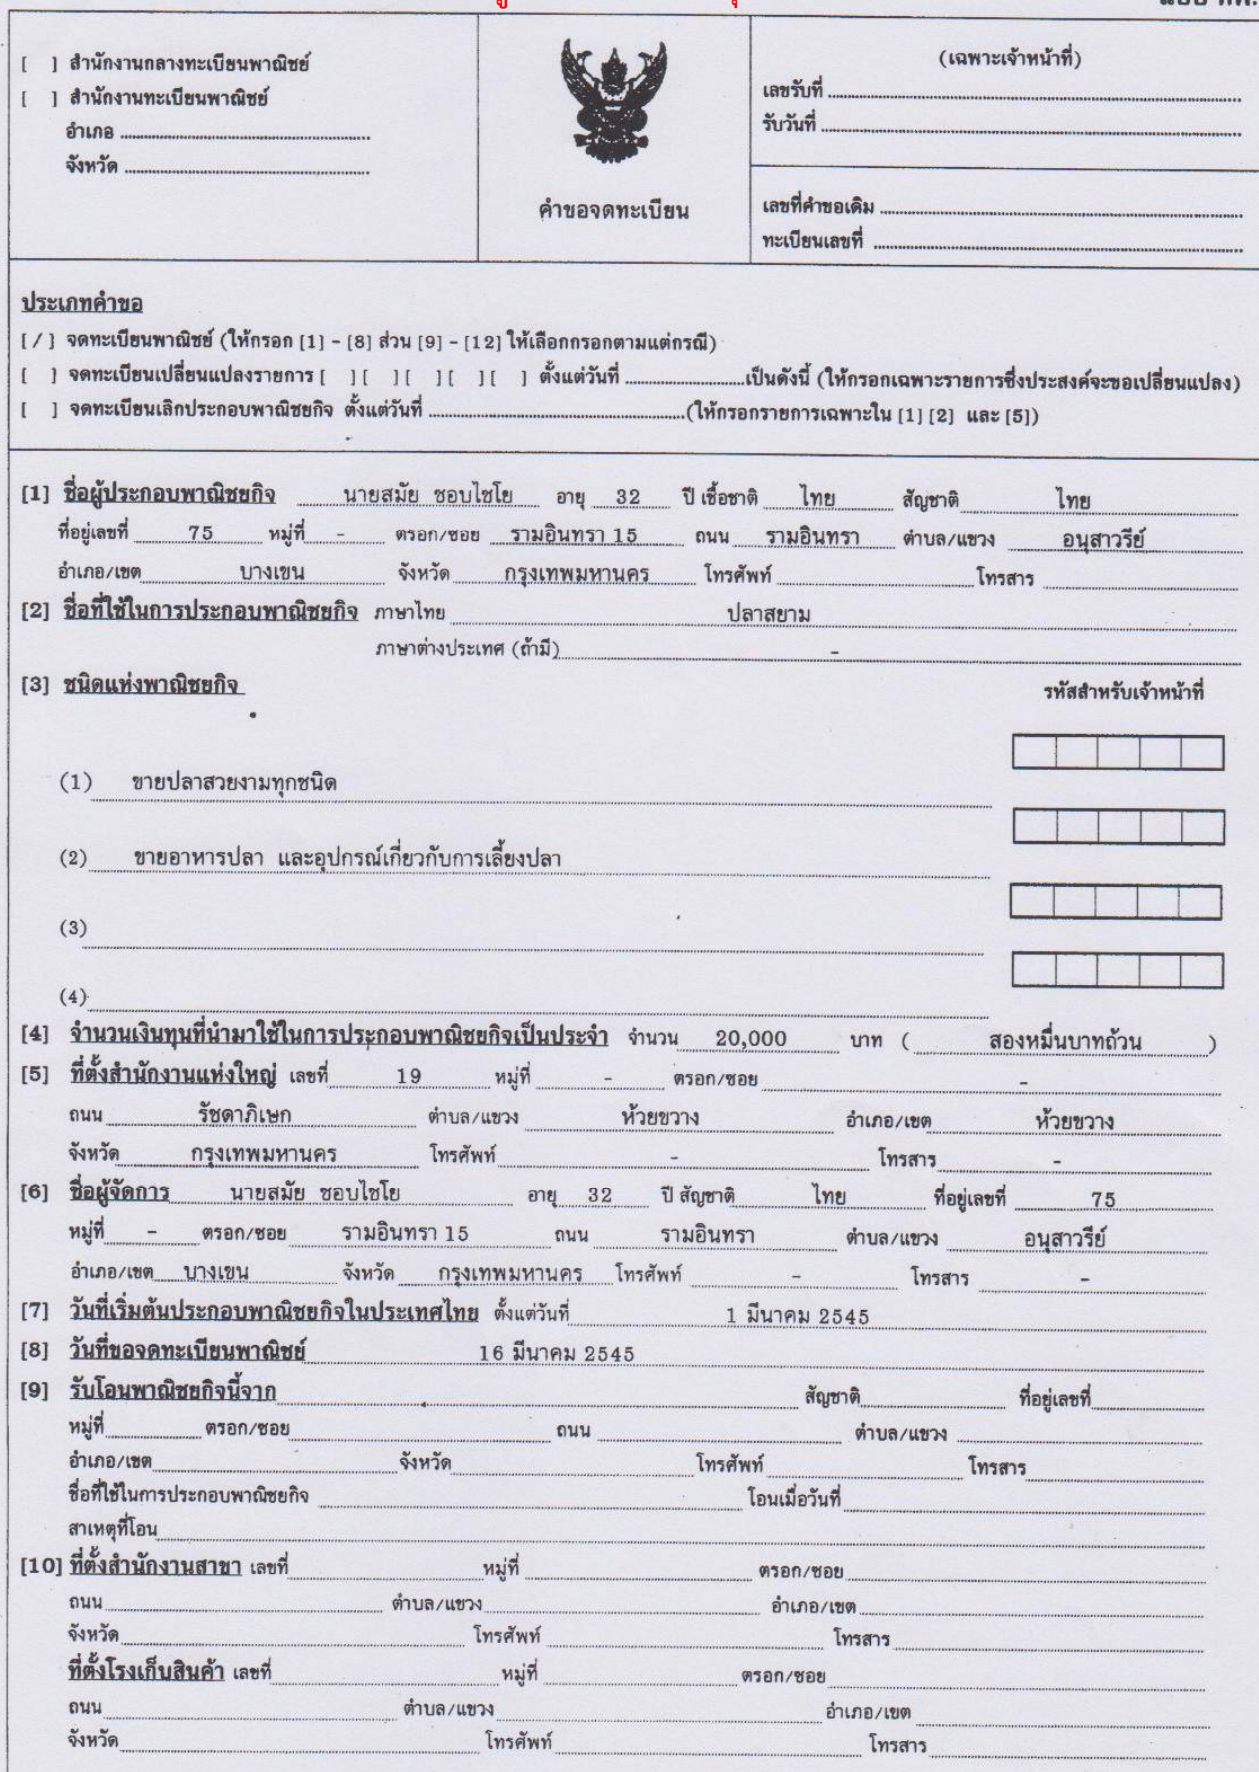 [ ] สำนักงานกลางทะเบียนพาณิชย์
[ ] สำนักงานทะเบียนพาณิชย์
อำเภอ
จังหวัด
คำขอจดทะเบียน
(เฉพาะเจ้าหน้าที่)
เลขรับที่
รับวันที่
เลขที่คำขอเดิม
ทะเบียนเลขที่
ประเภทคำขอ
[ / ] จดทะเบียนพาณิชย์ (ให้กรอก [1] - [8] ส่วน [9] - [12] ให้เลือกกรอกตามแต่กรณี)
[ ] จดทะเบียนเปลี่ยนแปลงรายการ [ ] [ ] [ ] [ ] [ ] ตั้งแต่วันที่ เป็นดังนี้ (ให้กรอกเฉพาะรายการซึ่งประสงค์จะขอเปลี่ยนแปลง)
[ ] จดทะเบียนเลิกประกอบพาณิชยกิจ ตั้งแต่วันที่ (ให้กรอกรายการเฉพาะใน [1] [2] และ [5])
[1] ชื่อผู้ประกอบพาณิชยกิจ นายสมัย ชอบไชโย อายุ 32 ปี เชื้อชาติ ไทย สัญชาติ ไทย
ที่อยู่เลขที่ 75 หมู่ที่ - ตรอก/ซอย รามอินทรา 15 ถนน รามอินทรา ตำบล/แขวง อนุสาวรีย์
อำเภอ/เขต บางเขน จังหวัด กรุงเทพมหานคร โทรศัพท์ โทรสาร
[2] ชื่อที่ใช้ในการประกอบพาณิชยกิจ ภาษาไทย ปลาสยาม
ภาษาต่างประเทศ (ถ้ามี) -
[3] ชนิดแห่งพาณิชยกิจ รหัสสำหรับเจ้าหน้าที่
(1) ขายปลาสวยงามทุกชนิด
(2) ขายอาหารปลา และอุปกรณ์เกี่ยวกับการเลี้ยงปลา
(3)
(4)
[4] จำนวนเงินทุนที่นำมาใช้ในการประกอบพาณิชยกิจเป็นประจำ จำนวน 20,000 บาท ( สองหมื่นบาทถ้วน )
[5] ที่ตั้งสำนักงานแห่งใหญ่ เลขที่ 19 หมู่ที่ - ตรอก/ซอย -
ถนน รัชดาภิเษก ตำบล/แขวง ห้วยขวาง อำเภอ/เขต ห้วยขวาง
จังหวัด กรุงเทพมหานคร โทรศัพท์ - โทรสาร -
[6] ชื่อผู้จัดการ นายสมัย ชอบไชโย อายุ 32 ปี สัญชาติ ไทย ที่อยู่เลขที่ 75
หมู่ที่ - ตรอก/ซอย รามอินทรา 15 ถนน รามอินทรา ตำบล/แขวง อนุสาวรีย์
อำเภอ/เขต บางเขน จังหวัด กรุงเทพมหานคร โทรศัพท์ - โทรสาร -
[7] วันที่เริ่มต้นประกอบพาณิชยกิจในประเทศไทย ตั้งแต่วันที่ 1 มีนาคม 2545
[8] วันที่ขอจดทะเบียนพาณิชย์ 16 มีนาคม 2545
[9] รับโอนพาณิชยกิจนี้จาก สัญชาติ ที่อยู่เลขที่
หมู่ที่ ตรอก/ซอย ถนน ตำบล/แขวง
อำเภอ/เขต จังหวัด โทรศัพท์ โทรสาร
ชื่อที่ใช้ในการประกอบพาณิชยกิจ โอนเมื่อวันที่
สาเหตุที่โอน
[10] ที่ตั้งสำนักงานสาขา เลขที่ หมู่ที่ ตรอก/ซอย
ถนน ตำบล/แขวง อำเภอ/เขต
จังหวัด โทรศัพท์ โทรสาร
ที่ตั้งโรงเก็บสินค้า เลขที่ หมู่ที่ ตรอก/ซอย
ถนน ตำบล/แขวง อำเภอ/เขต
จังหวัด โทรศัพท์ โทรสาร